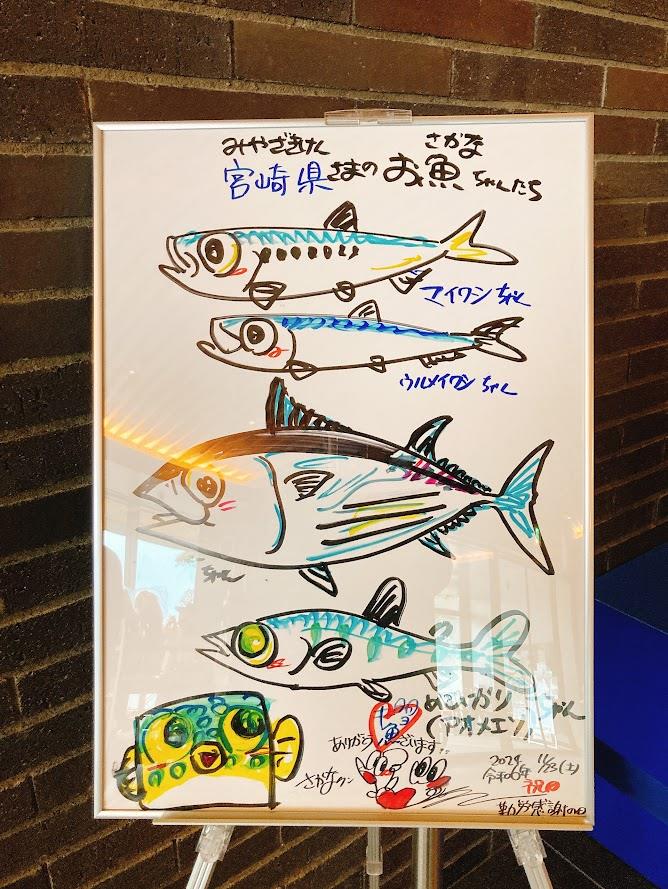 みやざきけん さかな
宮崎県さまのお魚ちゃんたち
マイワシちゃん
ウルメイワシちゃん
ちゃん
めひかりちゃん
(アオメエソ)
ありがとうギョざいます
さかなクン
2024 11/23(土)
令和6年 祝日
勤労感謝の日